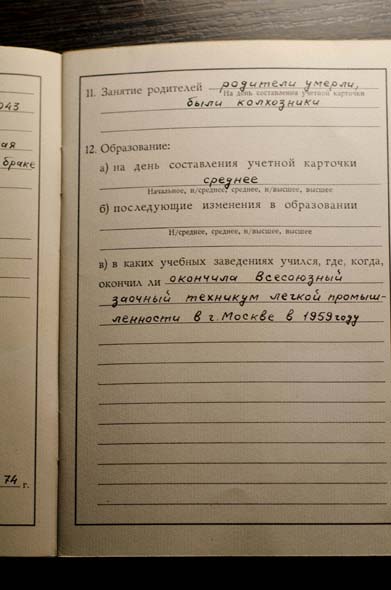 043
ая
браке
74 г.
11. Занятие родителей родители умерли,
На день составления учетной карточки
были колхозники
12. Образование:
а) на день составления учетной карточки
среднее
Начальное, н/среднее, среднее, н/высшее, высшее
б) последующие изменения в образовании
Н/среднее, среднее, н/высшее, высшее
в) в каких учебных заведениях учился, где, когда,
окончил ли окончила Всесоюзный
заочный техникум легкой промыш-
ленности в г. Москве в 1959 году